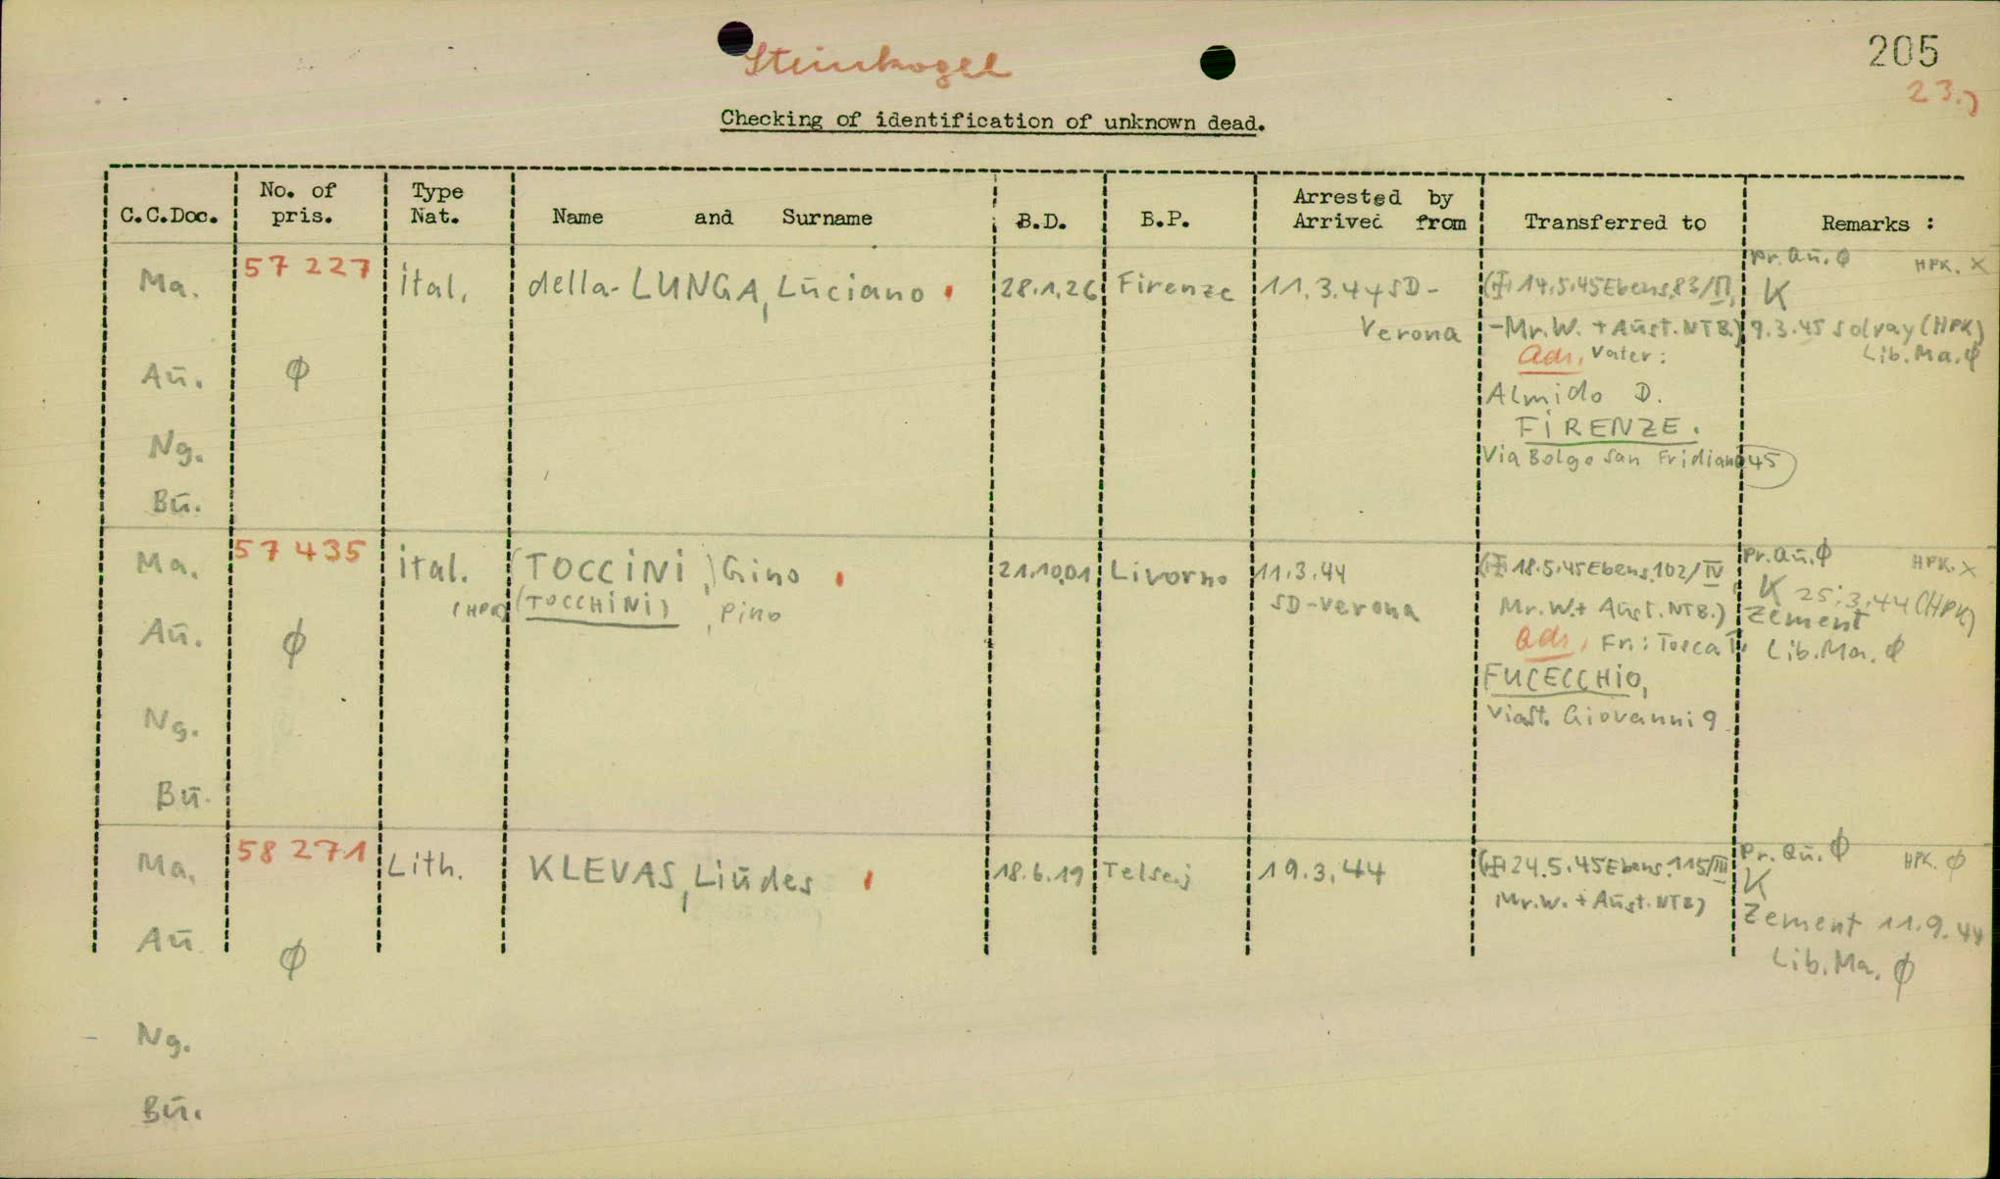 Steinkogel
205
23.)
Checking of identification of unknown dead.
C.C.Doc. No. of pris. Type Nat. Name and Surname B.D. B.P. Arrested by Arrived from Transferred to Remarks :
Ma. 57 227 ital. della-LUNGA, Luciano 28.1.26 Firenze 11.3.44 SD-Verona
(14.5.45 Ebens. 83/II,
-Mr.W. + Aūst. NTB.)
adr. Vater:
Almido D.
FIRENZE.
Via Bolgo San Fridiano 45
Pr. Aū. φ HPK. X
K
9.3.45 Solvay (HPK)
Lib. Ma. φ
Aū. φ
Ng.
Bū.
Ma. 57 435 ital. (TOCCINI), Gino 21.10.01 Livorno 11.3.44
(HPK) (TOCCHINI), Pino SD-Verona
(18.5.45 Ebens. 102/IV
Mr.W. + Aūst. NTB.)
adr. Fr.: Tosca T.
FUCECCHIO,
Via St. Giovanni 9
Pr. Aū. φ HPK. X
K 25.3.44 (HPK)
Zement
Lib. Ma. φ
Aū. φ
Ng.
Bū.
Ma. 58 271 Lith. KLEVAS, Liūdes 18.6.19 Telsej 19.3.44
(24.5.45 Ebens. 115/III
Mr.W. + Aūst. NTB)
Pr. Aū. φ HPK. φ
K
Zement 11.9.44
Lib. Ma. φ
Aū φ
Ng.
Bū.